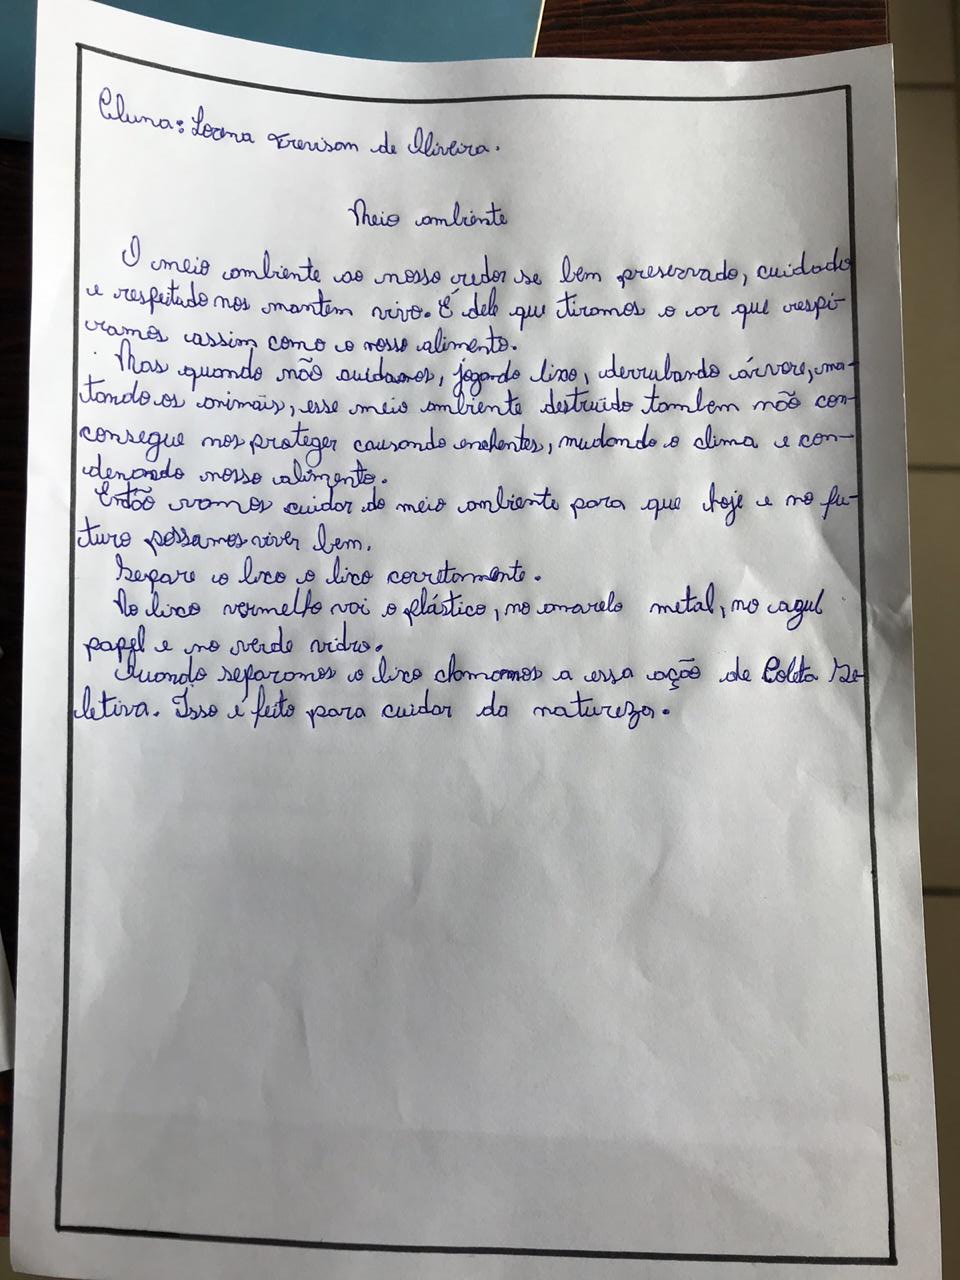 Aluna: Lorena Trevisam de Oliveira.
Meio ambiente
O meio ambiente ao nosso redor se bem preservado, cuidado
e respeitado nos mantem vivo. É dele que tiramos o ar que respi-
ramos assim como o nosso alimento.
Mas quando não cuidamos, jogando lixo, derrubando árvore, ma-
tando os animais, esse meio ambiente destruído tambem não con-
consegue nos proteger causando enchentes, mudando o clima e con-
denando nosso alimento.
Então vamos cuidar do meio ambiente para que hoje e no fu-
turo possamos viver bem.
Separe o lixo o lixo corretamente.
No lixo vermelho vai o plástico, no amarelo metal, no azul
papel e no verde vidro.
Quando separamos o lixo chamamos a essa ação de Coleta Se-
letiva. Isso é feito para cuidar da natureza.